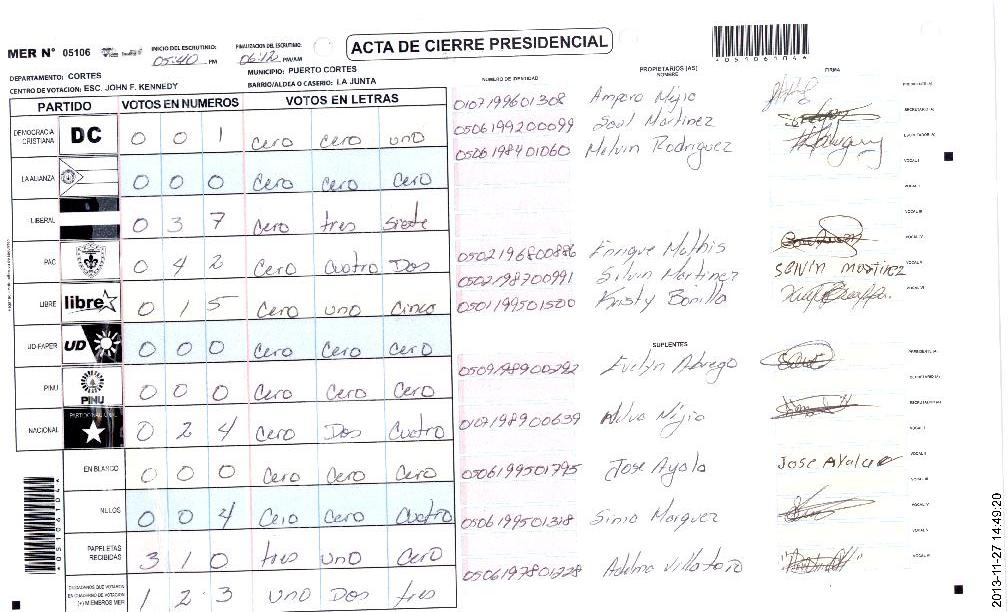 MER N° 05106
INICIO DEL ESCRUTINIO: 05:40 PM
FINALIZACION DEL ESCRUTINIO: 06:12 PM/AM
ACTA DE CIERRE PRESIDENCIAL
DEPARTAMENTO: CORTES
MUNICIPIO: PUERTO CORTES
CENTRO DE VOTACION: ESC. JOHN F. KENNEDY
BARRIO/ALDEA O CASERIO: LA JUNTA
NUMERO DE IDENTIDAD
PROPIETARIOS (AS)
NOMBRE
FIRMA
PARTIDO VOTOS EN NUMEROS VOTOS EN LETRAS
DEMOCRACIA CRISTIANA DC 0 0 1 cero cero uno
LA ALIANZA 0 0 0 Cero Cero Cero
LIBERAL 0 3 7 Cero tres siete
PAC 0 4 2 Cero Cuatro Dos
LIBRE libre 0 1 5 Cero uno Cinco
UD-FAPER UD 0 0 0 Cero Cero Cero
PINU PINU 0 0 0 Cero Cero Cero
NACIONAL 0 2 4 Cero Dos Cuatro
EN BLANCO 0 0 0 Cero Cero Cero
NULOS 0 0 4 Cero Cero Cuatro
PAPELETAS RECIBIDAS 3 1 0 tres uno Cero
CIUDADANOS QUE VOTARON EN CUADERNO DE VOTACION (+) MIEMBROS MER 1 2 3 uno Dos tres
0107199601308 Amparo Mejio
0506199200099 Saul Martinez
0506198401060 Melvin Rodriguez
0502196800886 Enrique Mathis
0502198700991 Silvin Martinez Selvin martinez
0501199501500 Kristy Bonilla
SUPLENTES
0509198900292 Evelyn Abrego
0107198900639 Mejio
0506199501795 Jose Ayala JOSE AYALA
0506199501318 Marquez
0506197801228 Villatoro
*05106104*
2013-11-27 14:49:20